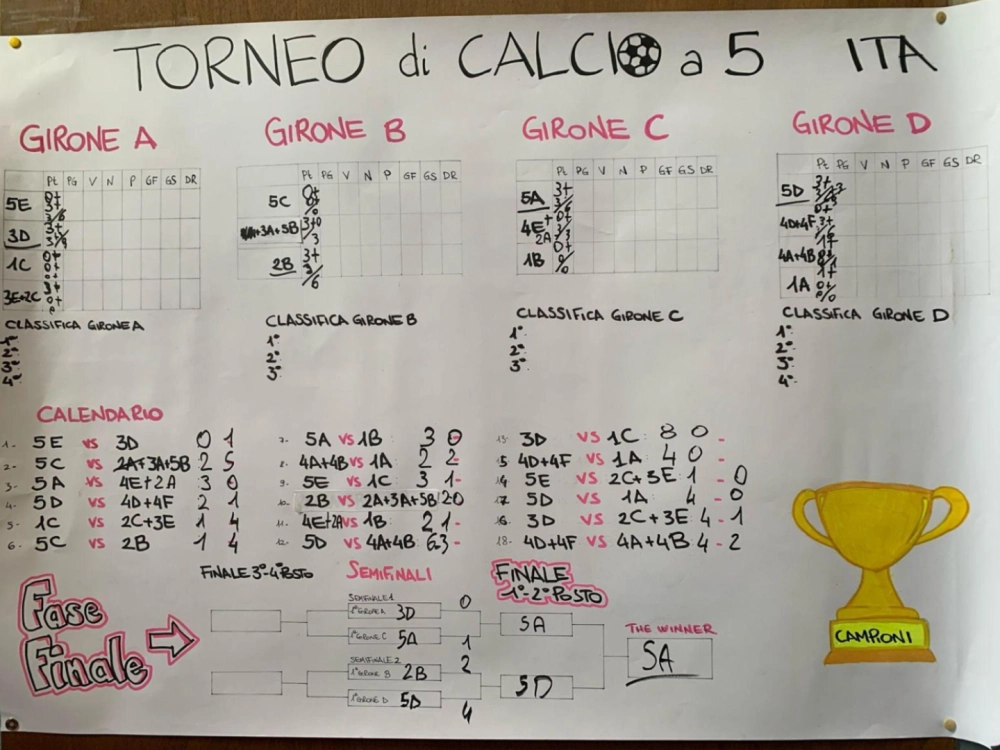 TORNEO di CALCIO a 5 ITA
GIRONE A
Pt PG V N P GF GS DR
5E 0+ 3+ 3/6
3D 3+ 3+
1C 0+ 0+
3E+2C 3+ 0+
CLASSIFICA GIRONE A
1°
2°
3°
4°
GIRONE B
Pt PG V N P GF GS DR
5C 0+
+3A+5B 3+0 /3
2B 3+ 3/6
CLASSIFICA GIRONE B
1°
2°
3°
GIRONE C
Pt PG V N P GF GS DR
5A 3+ 3/6
4E+ 2A 0+
1B 0+ 0/0
CLASSIFICA GIRONE C
1°
2°
3°
GIRONE D
Pt PG V N P GF GS DR
5D 3+
4D+4F 0+ 3+
4A+4B 1+
1A 1+ 0+
CLASSIFICA GIRONE D
1°
2°
3°
4°
CALENDARIO
1- 5E vs 3D 0 1
2- 5C vs 2A+3A+5B 2 5
3- 5A vs 4E+2A 3 0
4- 5D vs 4D+4F 2 1
5- 1C vs 2C+3E 1 4
6- 5C vs 2B 1 4
7- 5A vs 1B 3 0 -
8- 4A+4B vs 1A 2 2 -
9- 5E vs 1C 3 1 -
10- 2B vs 2A+3A+5B 2 0
11- 4E+2A vs 1B 2 1 -
12- 5D vs 4A+4B 6 3 -
13- 3D vs 1C 8 0 -
15 4D+4F vs 1A 4 0 -
14 5E vs 2C+3E 1 - 0
17 5D vs 1A 4 - 0
16 3D vs 2C+3E 4 - 1
18- 4D+4F vs 4A+4B 4 - 2
Fase
Finale
FINALE 3°-4° POSTO
SEMIFINALI
SEMIFINALE 1
1° GIRONE A 3D 0
1° GIRONE C 5A 1
SEMIFINALE 2
1° GIRONE B 2B 2
1° GIRONE D 5D 4
FINALE
1°-2° POSTO
5A
5D
THE WINNER
5A
CAMPIONI